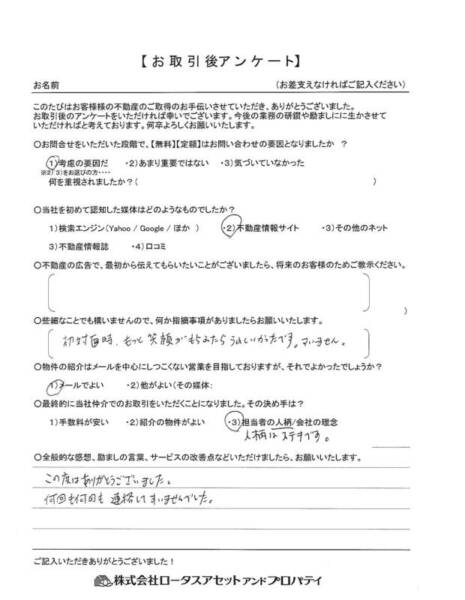 【お取引後アンケート】
お名前 (お差支えなければご記入ください)
このたびはお客様様の不動産のご取得のお手伝いさせていただき、ありがとうございました。
お取引後のアンケートをいただければ幸いでございます。今後の業務の研鑽や励ましにに生かさせて
いただければと考えております。何卒よろしくお願いいたします。
○お問合せをいただいた段階で、【無料】【定額】はお問い合わせの要因となりましたか ?
1)考慮の要因だ ・2)あまり重要ではない ・3)気づいていなかった
※2)3)をお選びの方・・・・
何を重視されましたか?( )
○当社を初めて認知した媒体はどのようなものでしたか?
1)検索エンジン(Yahoo / Google / ほか ) ・2)不動産情報サイト ・3)その他のネット
3)不動産情報誌 ・4)口コミ
○不動産の広告で、最初から伝えてもらいたいことがございましたら、将来のお客様のためご教示ください。
)
○些細なことでも構いませんので、何か指摘事項がありましたらお願いいたします。
初対面時、もっと笑顔がもらえたらうれしいかったです。すいません。
○物件の紹介はメールを中心にしつこくない営業を目指しておりますが、それでよかったでしょうか?
1)メールでよい ・2)他がよい(その媒体:
○最終的に当社仲介でのお取引をいただくことになりました。その決め手は?
1)手数料が安い ・2)紹介の物件がよい ・3)担当者の人柄/会社の理念
人柄はステキです。
○全般的な感想、励ましの言葉、サービスの改善点などいただけましたら、お願いいたします。
この度はありがとうございました。
何回も何回も連絡してすいませんでした。
ご記入いただきありがとうございました!
株式会社ロータスアセットアンドプロパティ